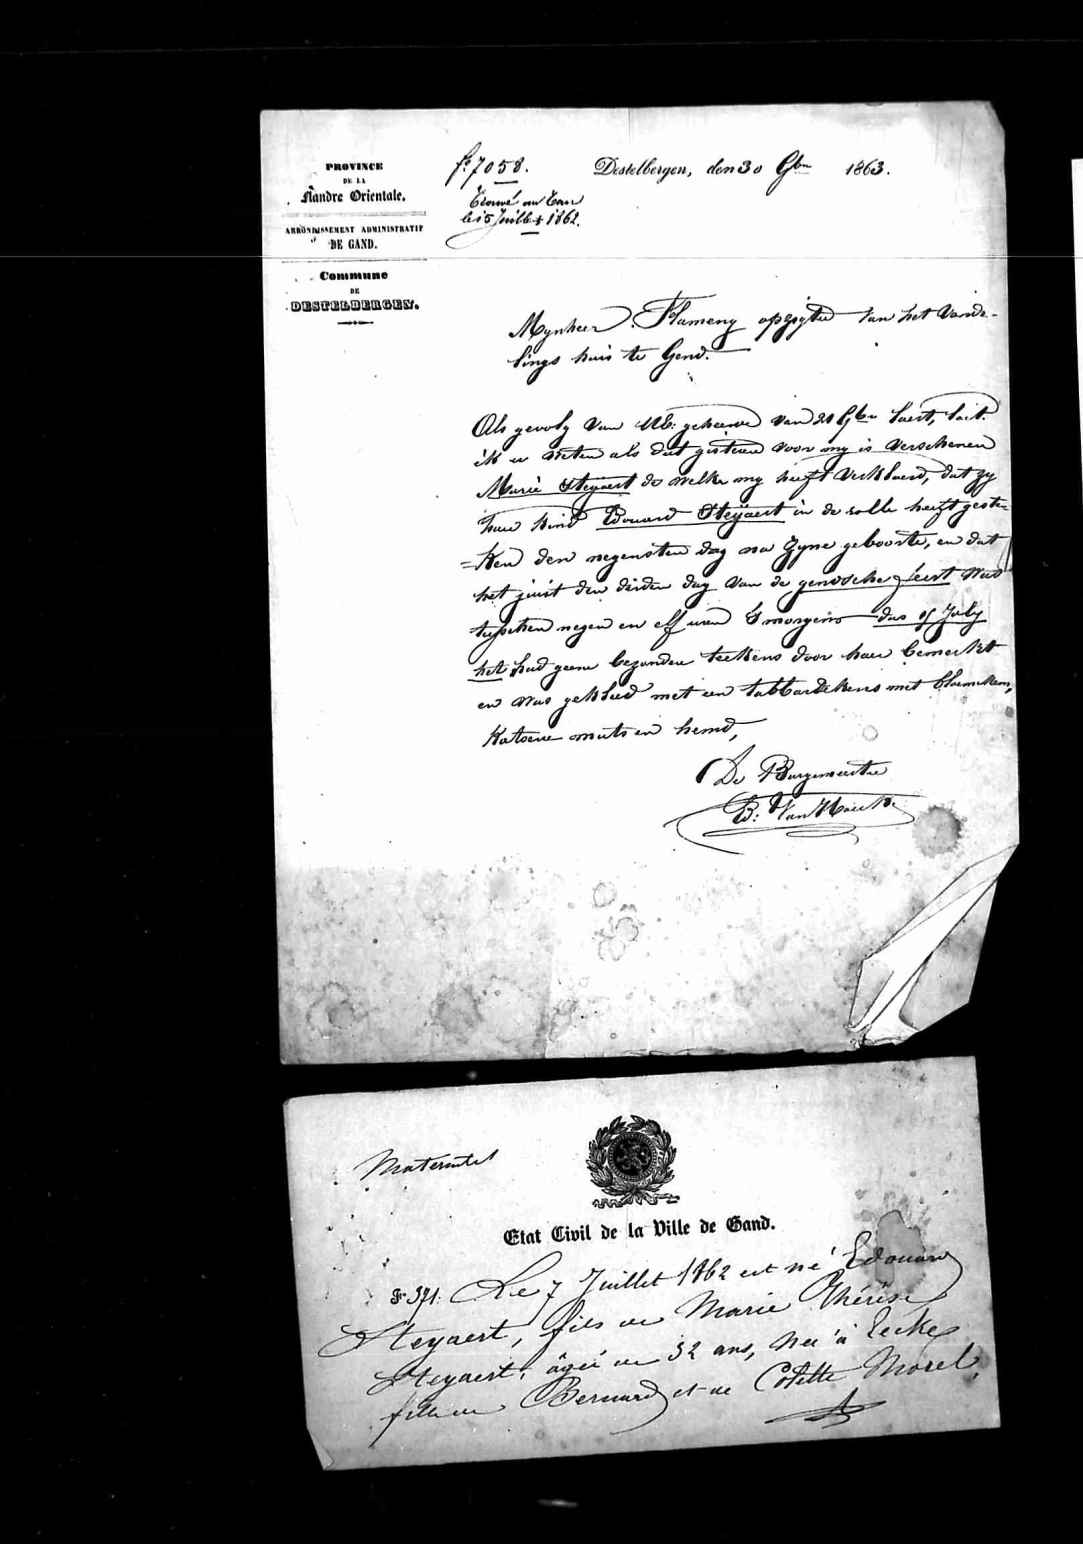 PROVINCE
DE LA
Flandre Orientale.
ARRONDISSEMENT ADMINISTRATIF
DE GAND.
Commune
DE
DESTELBERGEN.
fo. 7058.
Trouvé au Tour
le 15 Juillet 1862.
Destelbergen, den 30 9bre 1863.
Mynheer Flameng opzigter van het Vonde-
lings huis te Gend.
Als gevolg van UE: geheerde van 28 9bre laest, laet
ik u weten als dat gisteren voor my is verschenen
Marie Steyaert de welke my heeft verklaerd, dat zy
haer kind Edouard Steÿaert in de rolle heeft geste-
=ken den negensten dag na zyne geboorte, en dat
het juist den derden dag van de gentsche feest was
tusschen negen en elf uren s'morgens das of July
het had geene bezondere teekens door haer bemerkt
en was gekleed met een tabbaerdekens met bloemekens,
katoene muts en hemd,
De Burgemeester
B: Van
Maternité
Etat Civil de la Ville de Gand.
Fo 371. Le 7 Juillet 1862 est né Edouard
Steyaert, fils de Marie Thérèse
Steyaert, âgée de 32 ans, née à Eecke
fille de Bernard et de Colette Morel,